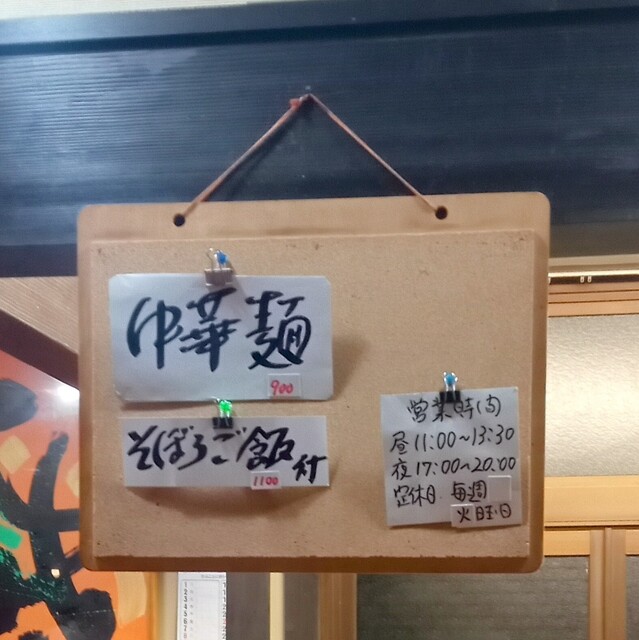 中華麺
900
そぼろご飯付
1100
営業時間
昼11:00~13:30
夜17:00~20:00
定休日 毎週
火曜日